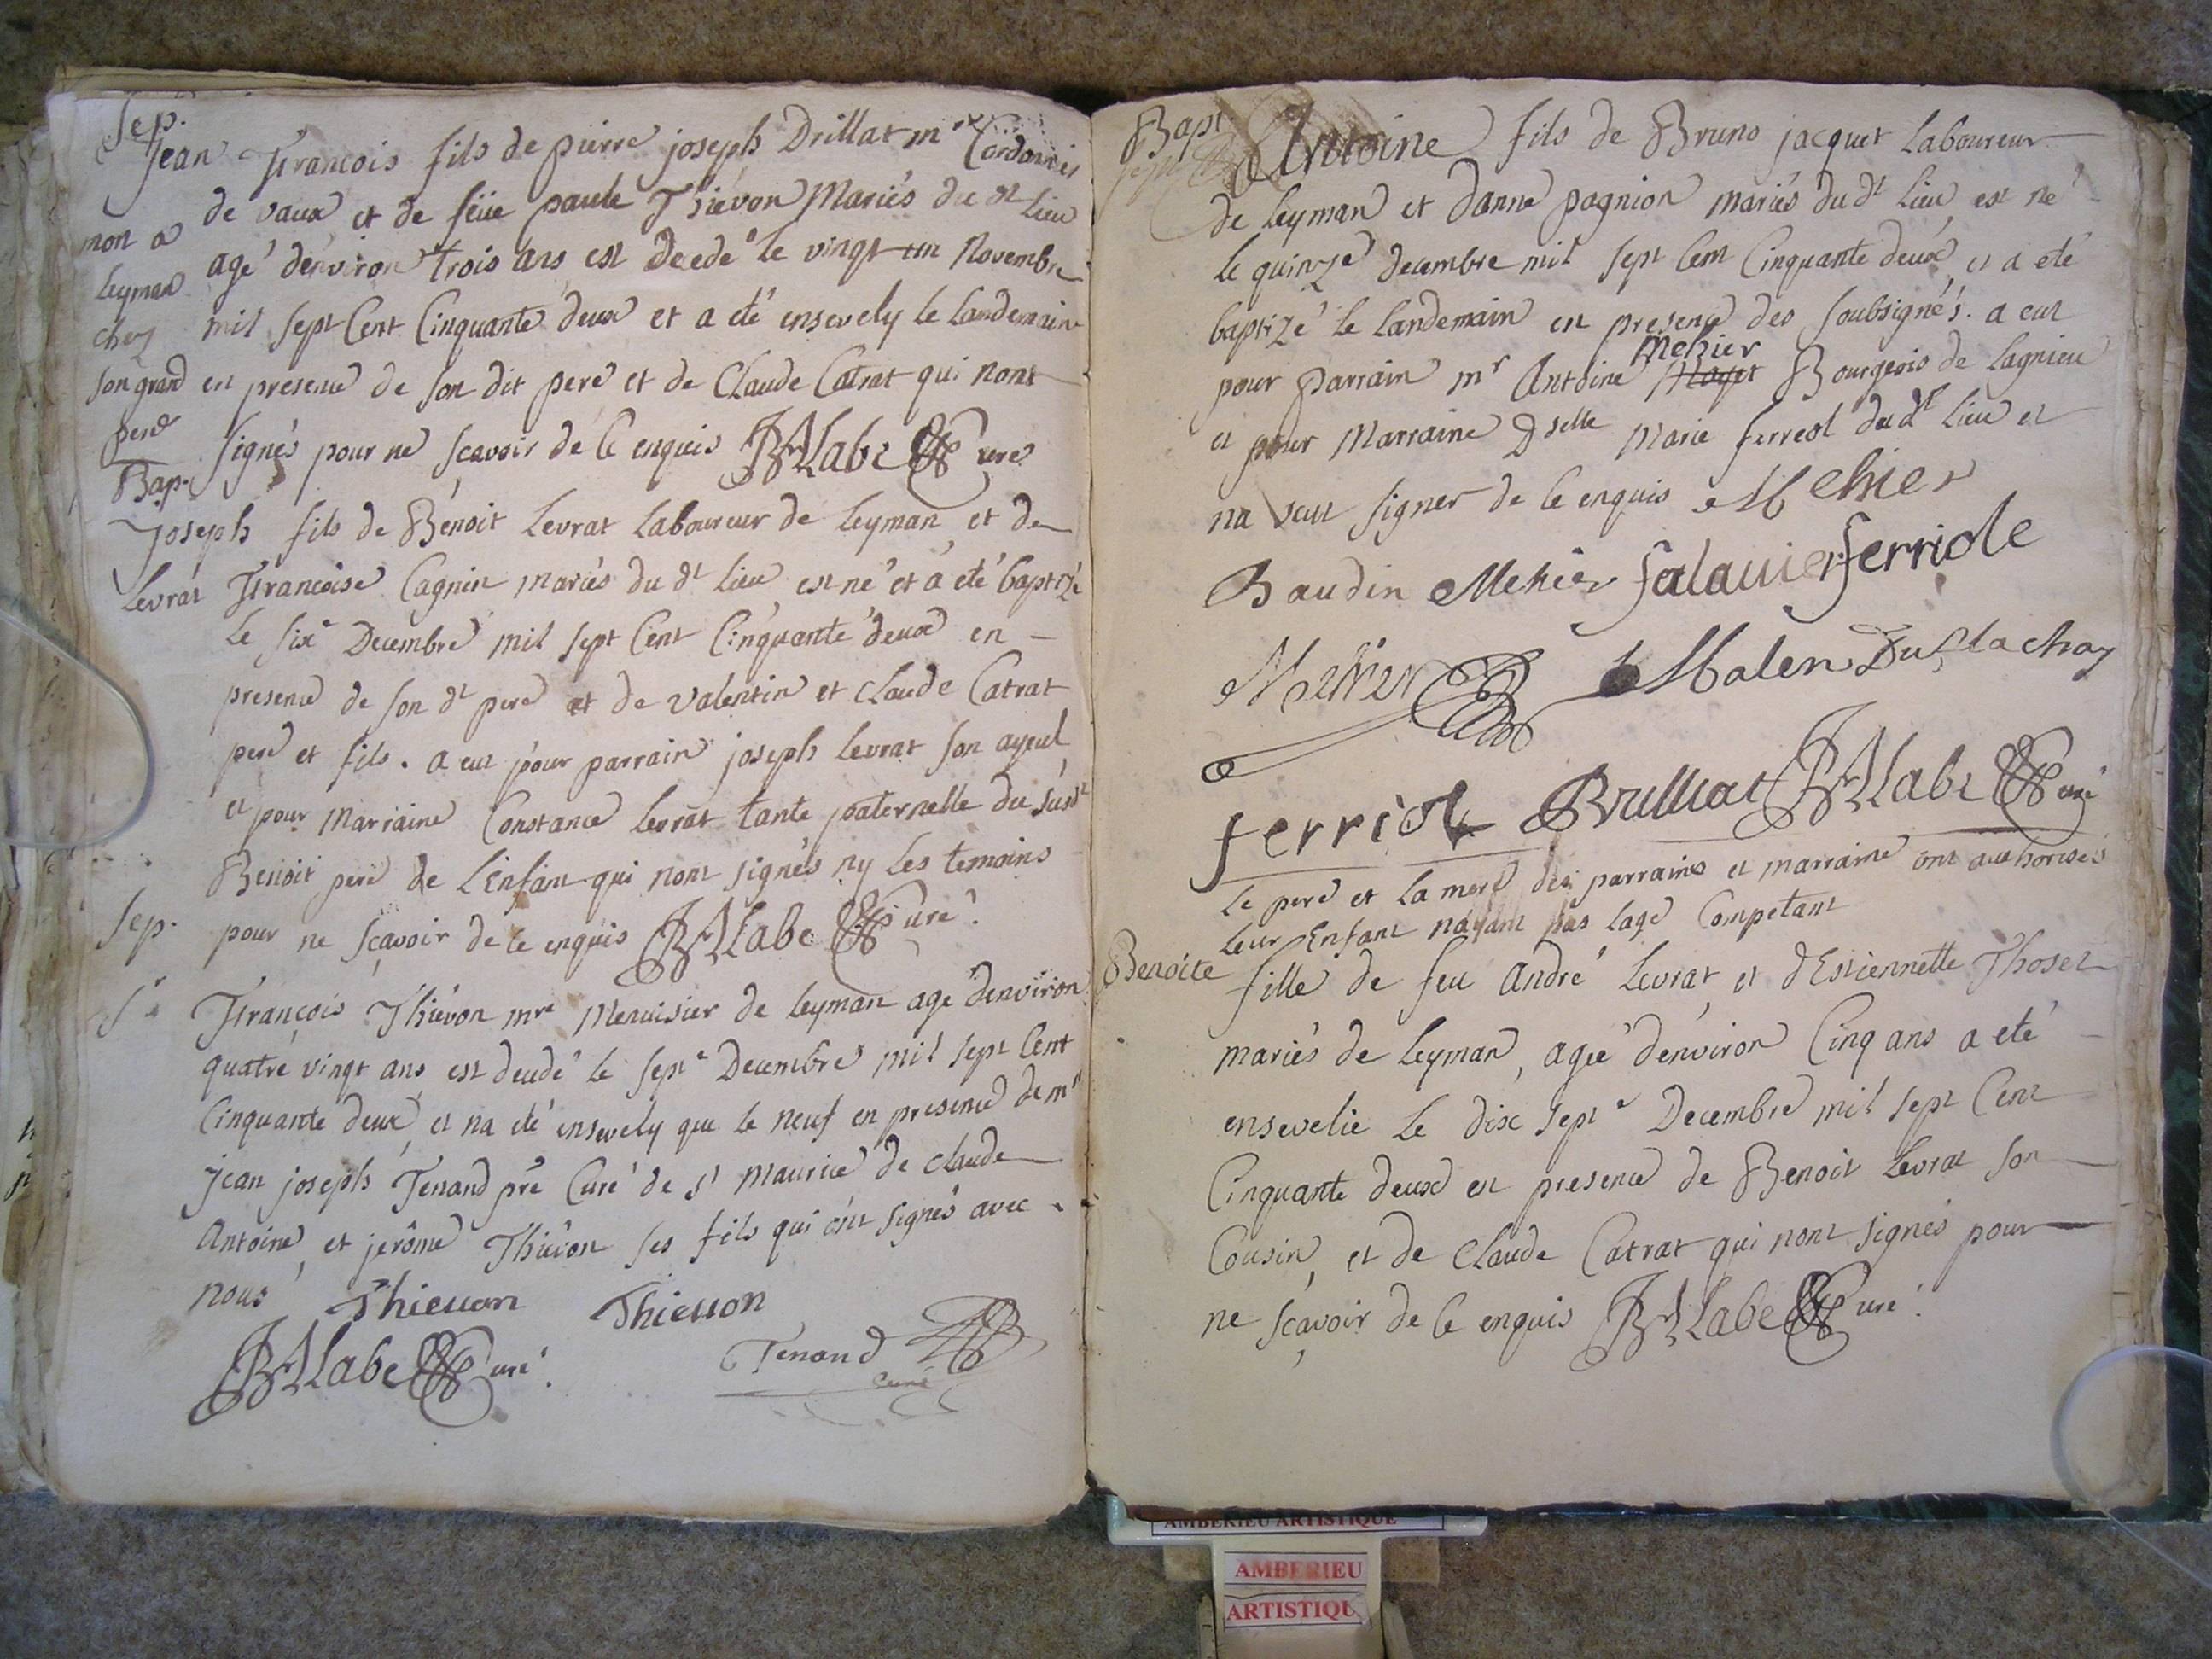 Sep.
Jean François fils de pierre joseph Drillat mre Cordonnier
de vaux et de feüe paule Thiévon Mariés du dt Lieu
mort a Leyman chez son grand pere
agé d'environ trois ans est decedé le vingt un Novembre
mil sept Cent Cinquante deux et a eté ensevely le landemain
en presence de son dit pere et de Claude Catrat qui nont
signés pour ne scavoir de ce enquis BMLabe Curé
Bap.
Joseph fils de Benoit Levrat Laboureur de Leyman et de
Levrat
Françoise Cagnin mariés du dt Lieu est né et a eté baptizé
le sixe Decembre mil sept Cent Cinquante deux en
presence de son dt pere et de valentin et claude Catrat
pere et fils. a eut pour parrain joseph levrat son ayeul
et pour Marraine Constance levrat tante paternelle du susdt
Benoit pere de L'Enfant qui nont signés ny les temoins
Sep.
pour ne sçavoir de ce enquis BMLabe Curé.
Sr
François Thiévon mre Menuisier de Leyman agé d'environ
quatre vingt ans est decedé le septe Decembre mil sept Cent
Cinquante deux, et na eté ensevely que le neuf en presence de mr
jean joseph Tenand pre Curé de st Maurice de claude
Antoine, et jerôme Thiévon ses fils qui ont signés avec
nous Thieuon Thieuon
BMLabe Curé. Tenand
curé
Bapt
Antoine fils de Bruno jacquet Laboureur
de Leyman et danne pagnion mariés du dt Lieu est né
le quinze decembre mil sept Cent Cinquante deux et a eté
baptizé le landemain en presence des soubsignés. a eut
pour parrain mr Antoine Mehier Bourgeois de Lagnieu
et pour Marraine Dselle Marie ferreol du dt Lieu et
na sceu signer de ce enquis Mehier
Baudin Mehier falauier ferriole
Mehier Malen Duplachay
ferriol Brulliat BMLabe Curé
Le pere et la mere des parrains et marraine ont authorisés
leur Enfant n'ayant pas lage Competant
Benoite
fille de feu André Levrat et d'Estiennette Thoset
mariés de Leyman, agée d'environ Cinq ans a eté
ensevelie le dix septe Decembre mil sept Cent
Cinquante deux en presence de Benoit Levrat son
Cousin, et de Claude Catrat qui nont signés pour
ne sçavoir de ce enquis BMLabe Curé.
AMBERIEU ARTISTIQUE
AMBERIEU
ARTISTIQU